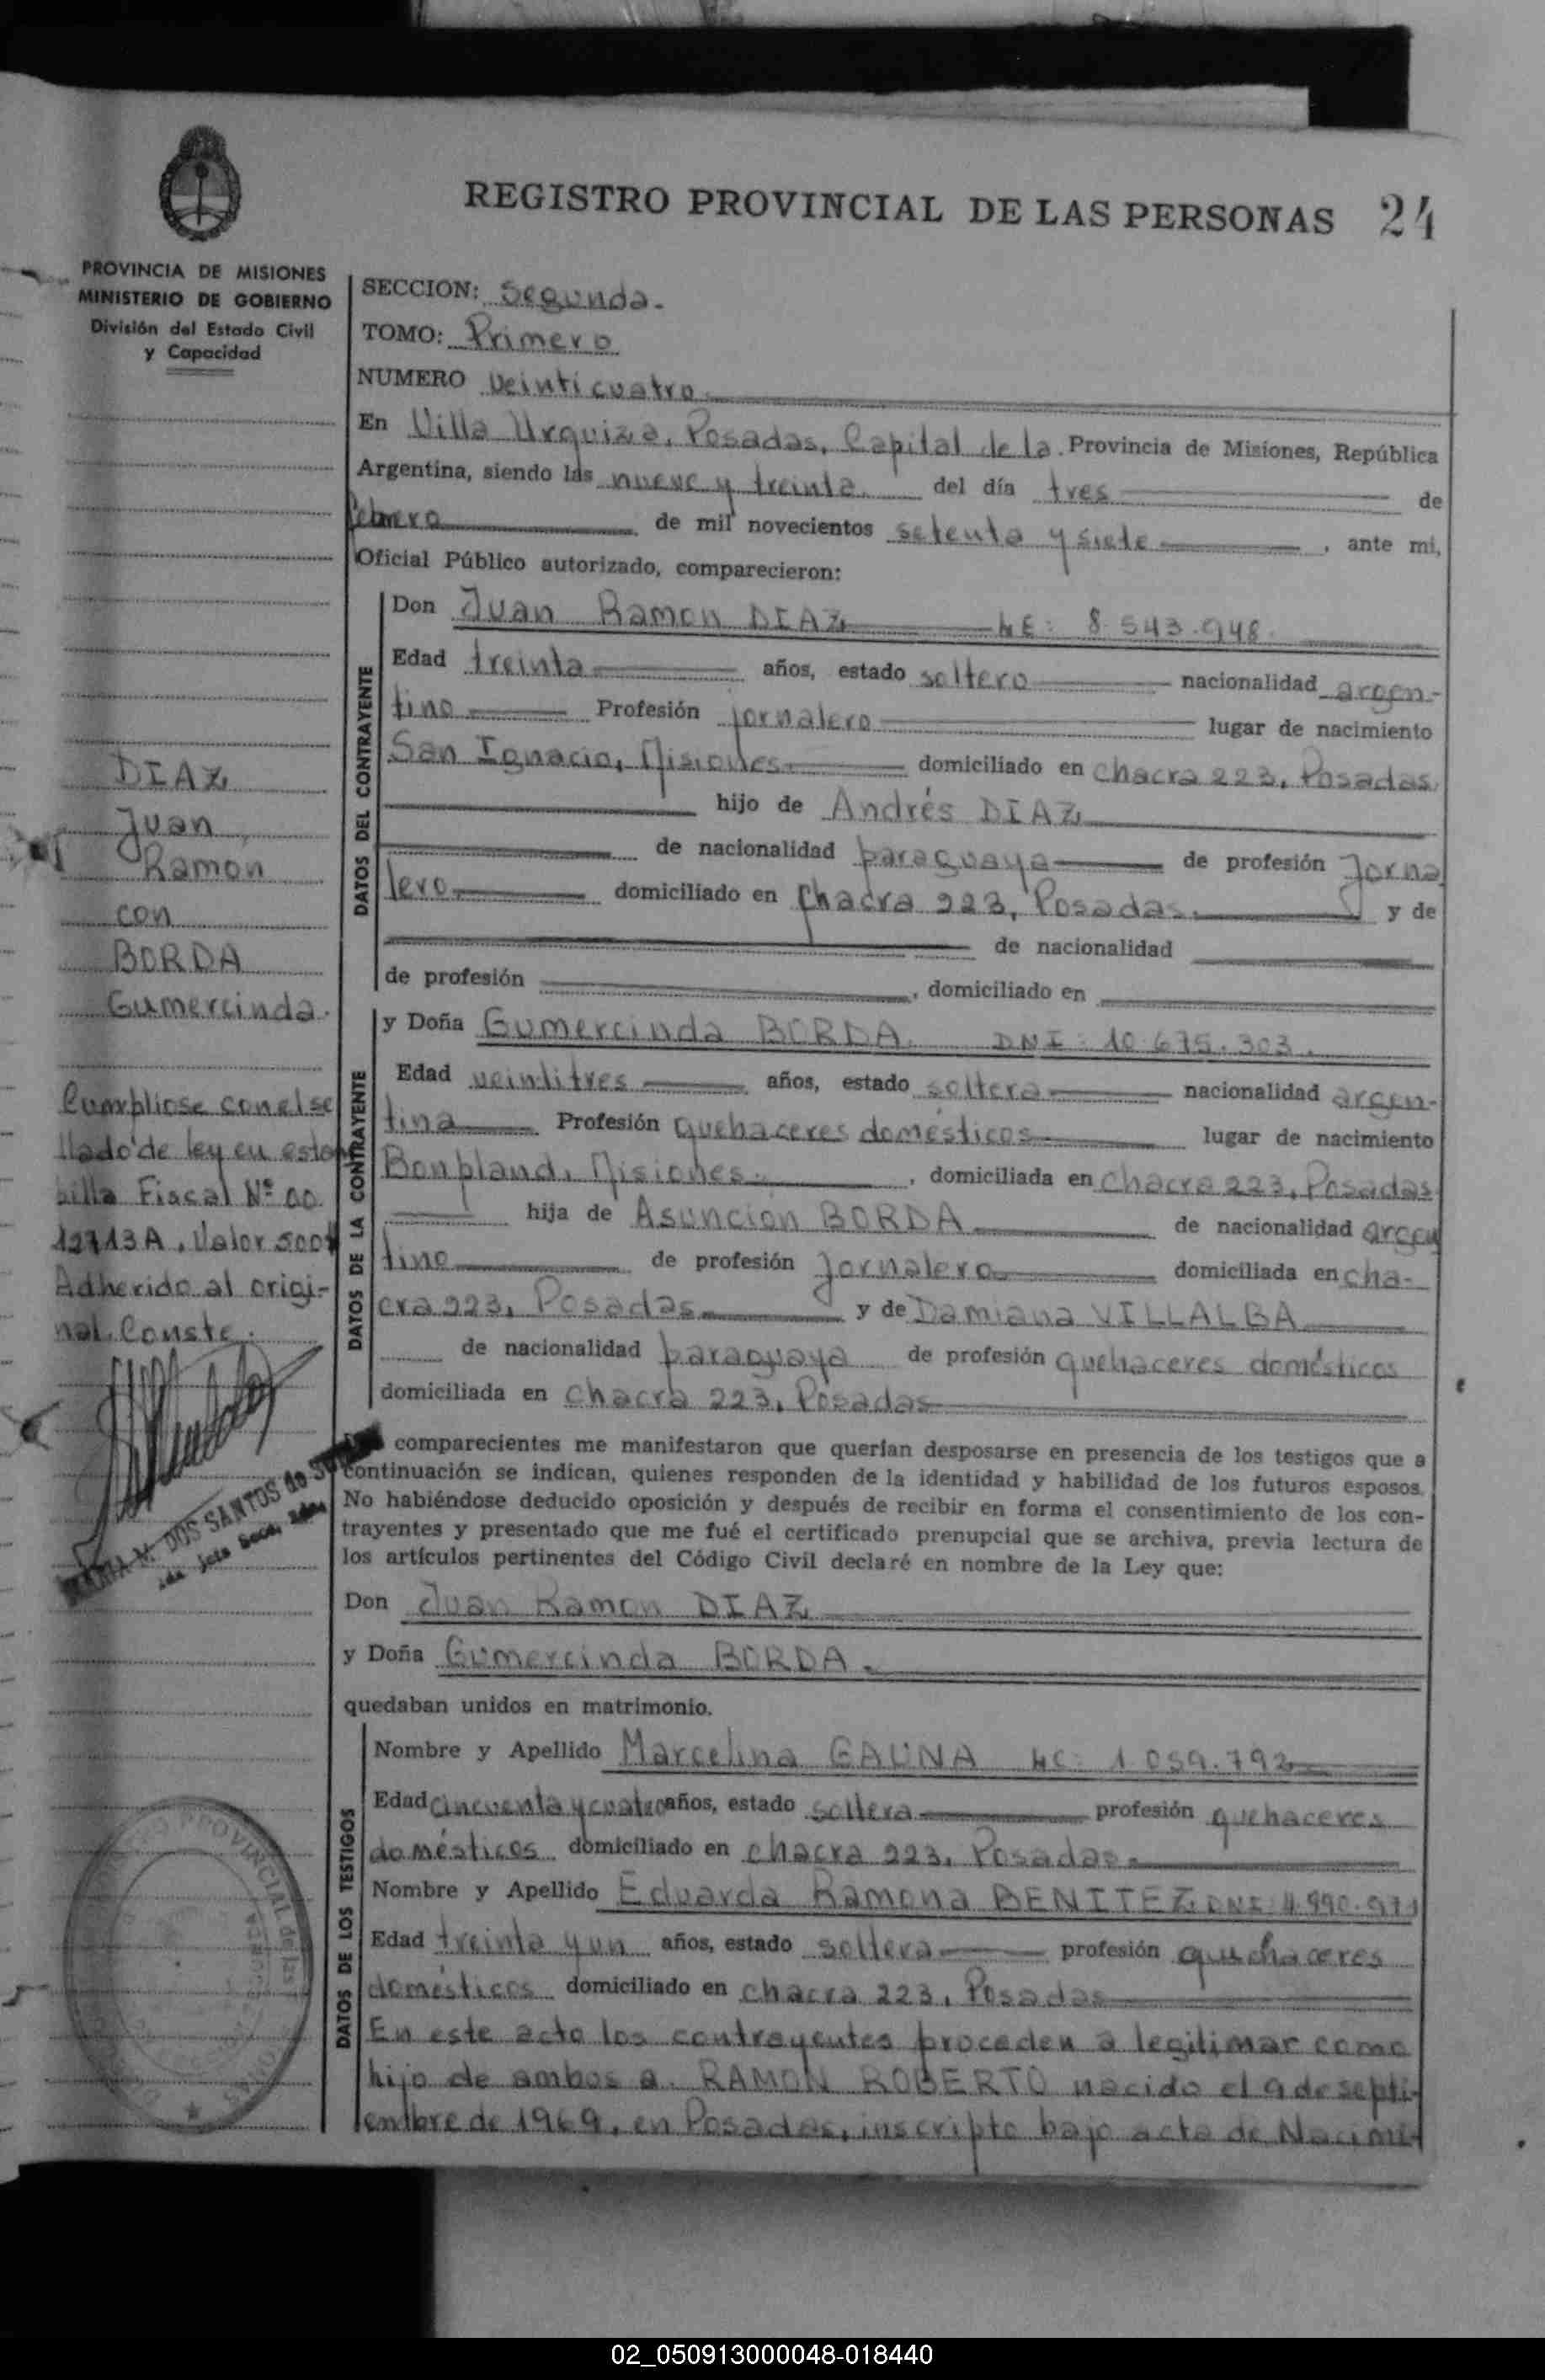 REGISTRO PROVINCIAL DE LAS PERSONAS 24
PROVINCIA DE MISIONES
MINISTERIO DE GOBIERNO
División del Estado Civil
y Capacidad
SECCION: Segunda.
TOMO: Primero
NUMERO veinticuatro
En Villa Urquiza, Posadas, Capital de la Provincia de Misiones, República
Argentina, siendo las nueve y treinta del día tres de
febrero de mil novecientos setenta y siete, ante mi,
Oficial Público autorizado, comparecieron:
DATOS DEL CONTRAYENTE
Don Juan Ramon DIAZ LE: 8.543.948.
Edad treinta años, estado soltero nacionalidad argen-
tino Profesión jornalero lugar de nacimiento
San Ignacio, Misiones domiciliado en chacra 223, Posadas
hijo de Andrés DIAZ
de nacionalidad paraguaya de profesión Jorna
lero domiciliado en chacra 223, Posadas. y de
de nacionalidad
de profesión , domiciliado en
DATOS DE LA CONTRAYENTE
y Doña Gumercinda BORDA. DNI: 10.675.303.
Edad veintitres años, estado soltera nacionalidad argen-
tina Profesión quehaceres domésticos lugar de nacimiento
Bonpland, Misiones. , domiciliada en chacra 223, Posadas
hija de Asuncion BORDA de nacionalidad argen
tino de profesión Jornalero domiciliada en cha-
cra 223, Posadas y de Damiana VILLALBA
de nacionalidad paraguaya de profesión quehaceres domésticos
domiciliada en chacra 223, Posadas
comparecientes me manifestaron que querían desposarse en presencia de los testigos que a
continuación se indican, quienes responden de la identidad y habilidad de los futuros esposos.
No habiéndose deducido oposición y después de recibir en forma el consentimiento de los con-
trayentes y presentado que me fué el certificado prenupcial que se archiva, previa lectura de
los artículos pertinentes del Código Civil declaré en nombre de la Ley que:
Don Juan Ramon DIAZ
y Doña Gumercinda BORDA.
quedaban unidos en matrimonio.
DATOS DE LOS TESTIGOS
Nombre y Apellido Marcelina GAUNA LC: 1.059.792
Edad cincuenta y cuatro años, estado soltera profesión quehaceres
domésticos domiciliado en chacra 223, Posadas.
Nombre y Apellido Eduarda Ramona BENITEZ DNI
Edad treinta y un años, estado soltera profesión quehaceres
domésticos domiciliado en chacra 223, Posadas
En este acto los contrayentes proceden a legitimar como
hijo de ambos a. RAMON ROBERTO nacido el 9 de septi-
embre de 1969, en Posadas, inscripto bajo acta de Nacimi-
DIAZ
Juan
Ramon
con
BORDA
Gumercinda.
Cumpliose con el se
llado de ley en estam
pilla Fiscal Nº 00
12713A, Valor 500$
Adherido al origi-
nal. Conste.
MARIA M. DOS SANTOS de
02_050913000048-018440